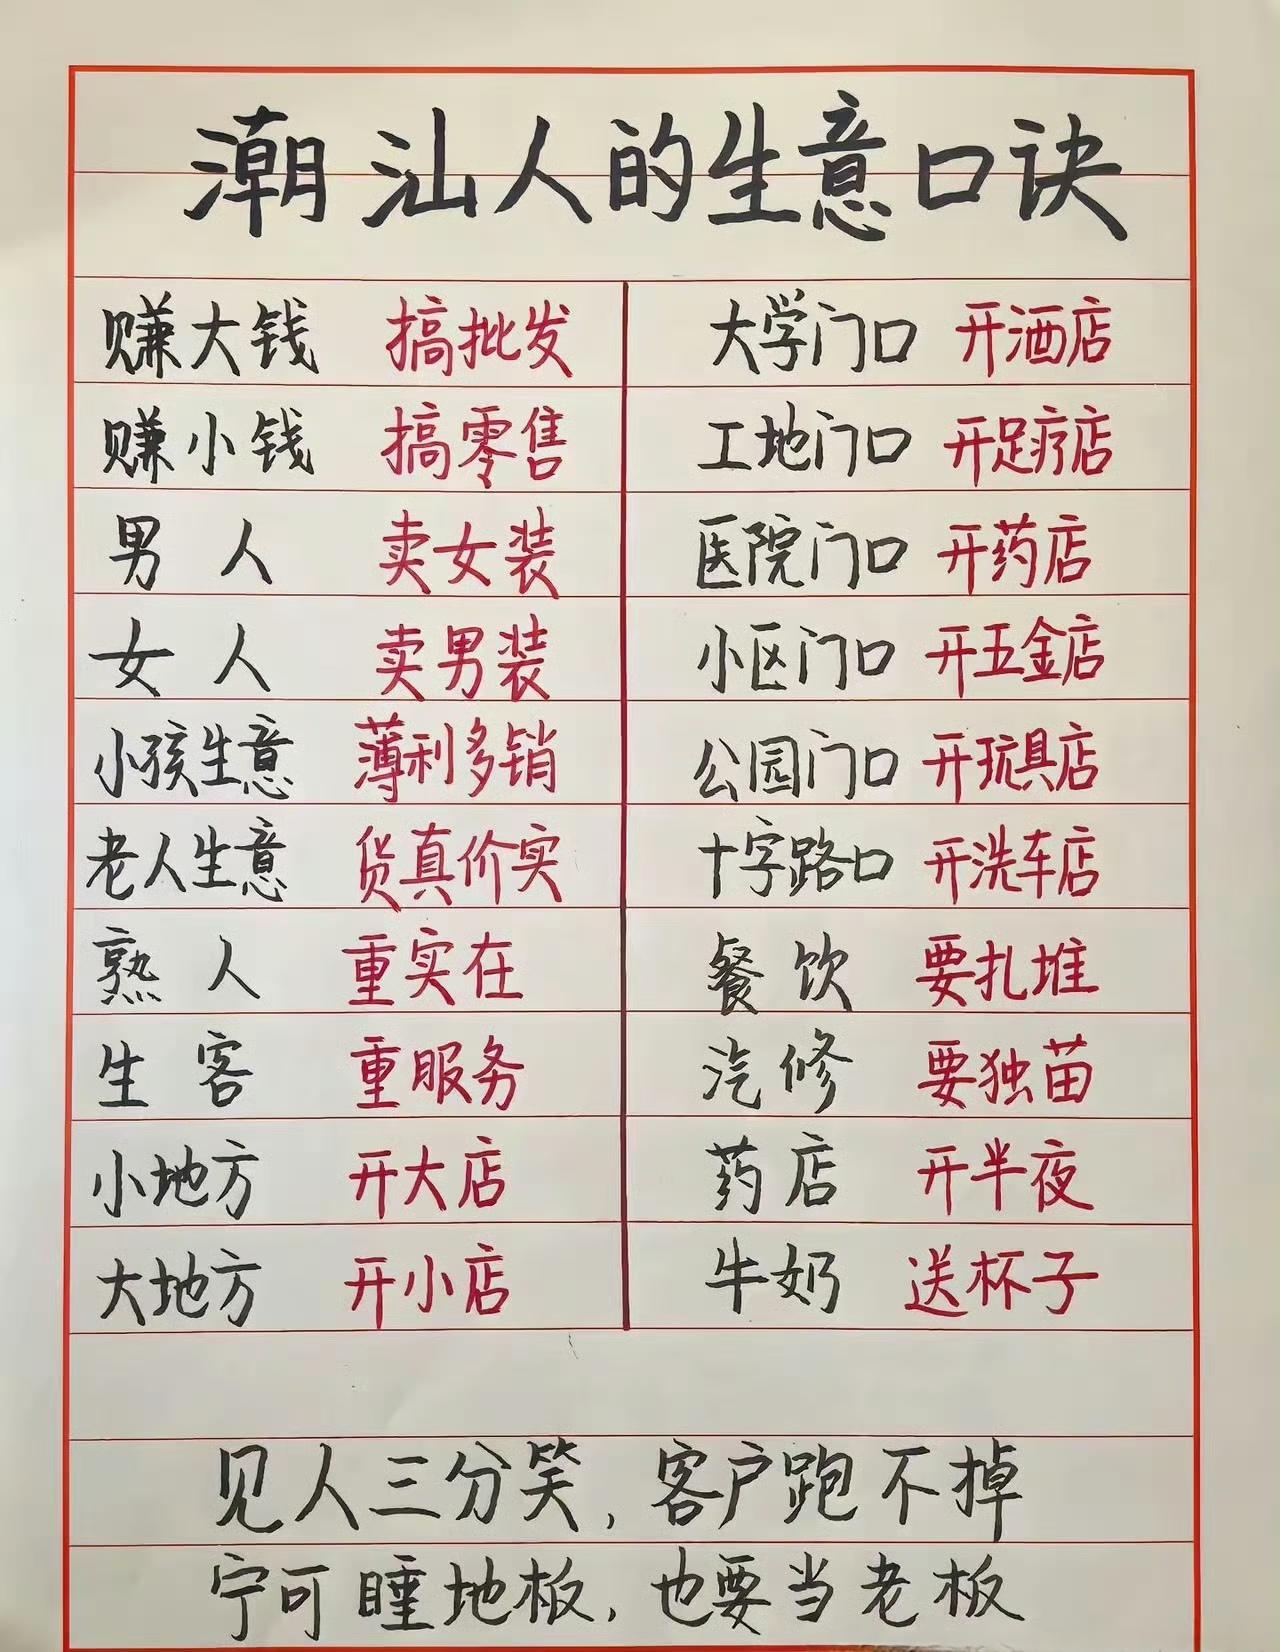 潮汕人的生意口诀
赚大钱 搞批发
赚小钱 搞零售
男人 卖女装
女人 卖男装
小孩生意 薄利多销
老人生意 货真价实
熟人 重实在
生客 重服务
小地方 开大店
大地方 开小店
大学门口 开酒店
工地门口 开足疗店
医院门口 开药店
小区门口 开五金店
公园门口 开玩具店
十字路口 开洗车店
餐饮 要扎堆
汽修 要独苗
药店 开半夜
牛奶 送杯子
见人三分笑,客户跑不掉
宁可睡地板,也要当老板